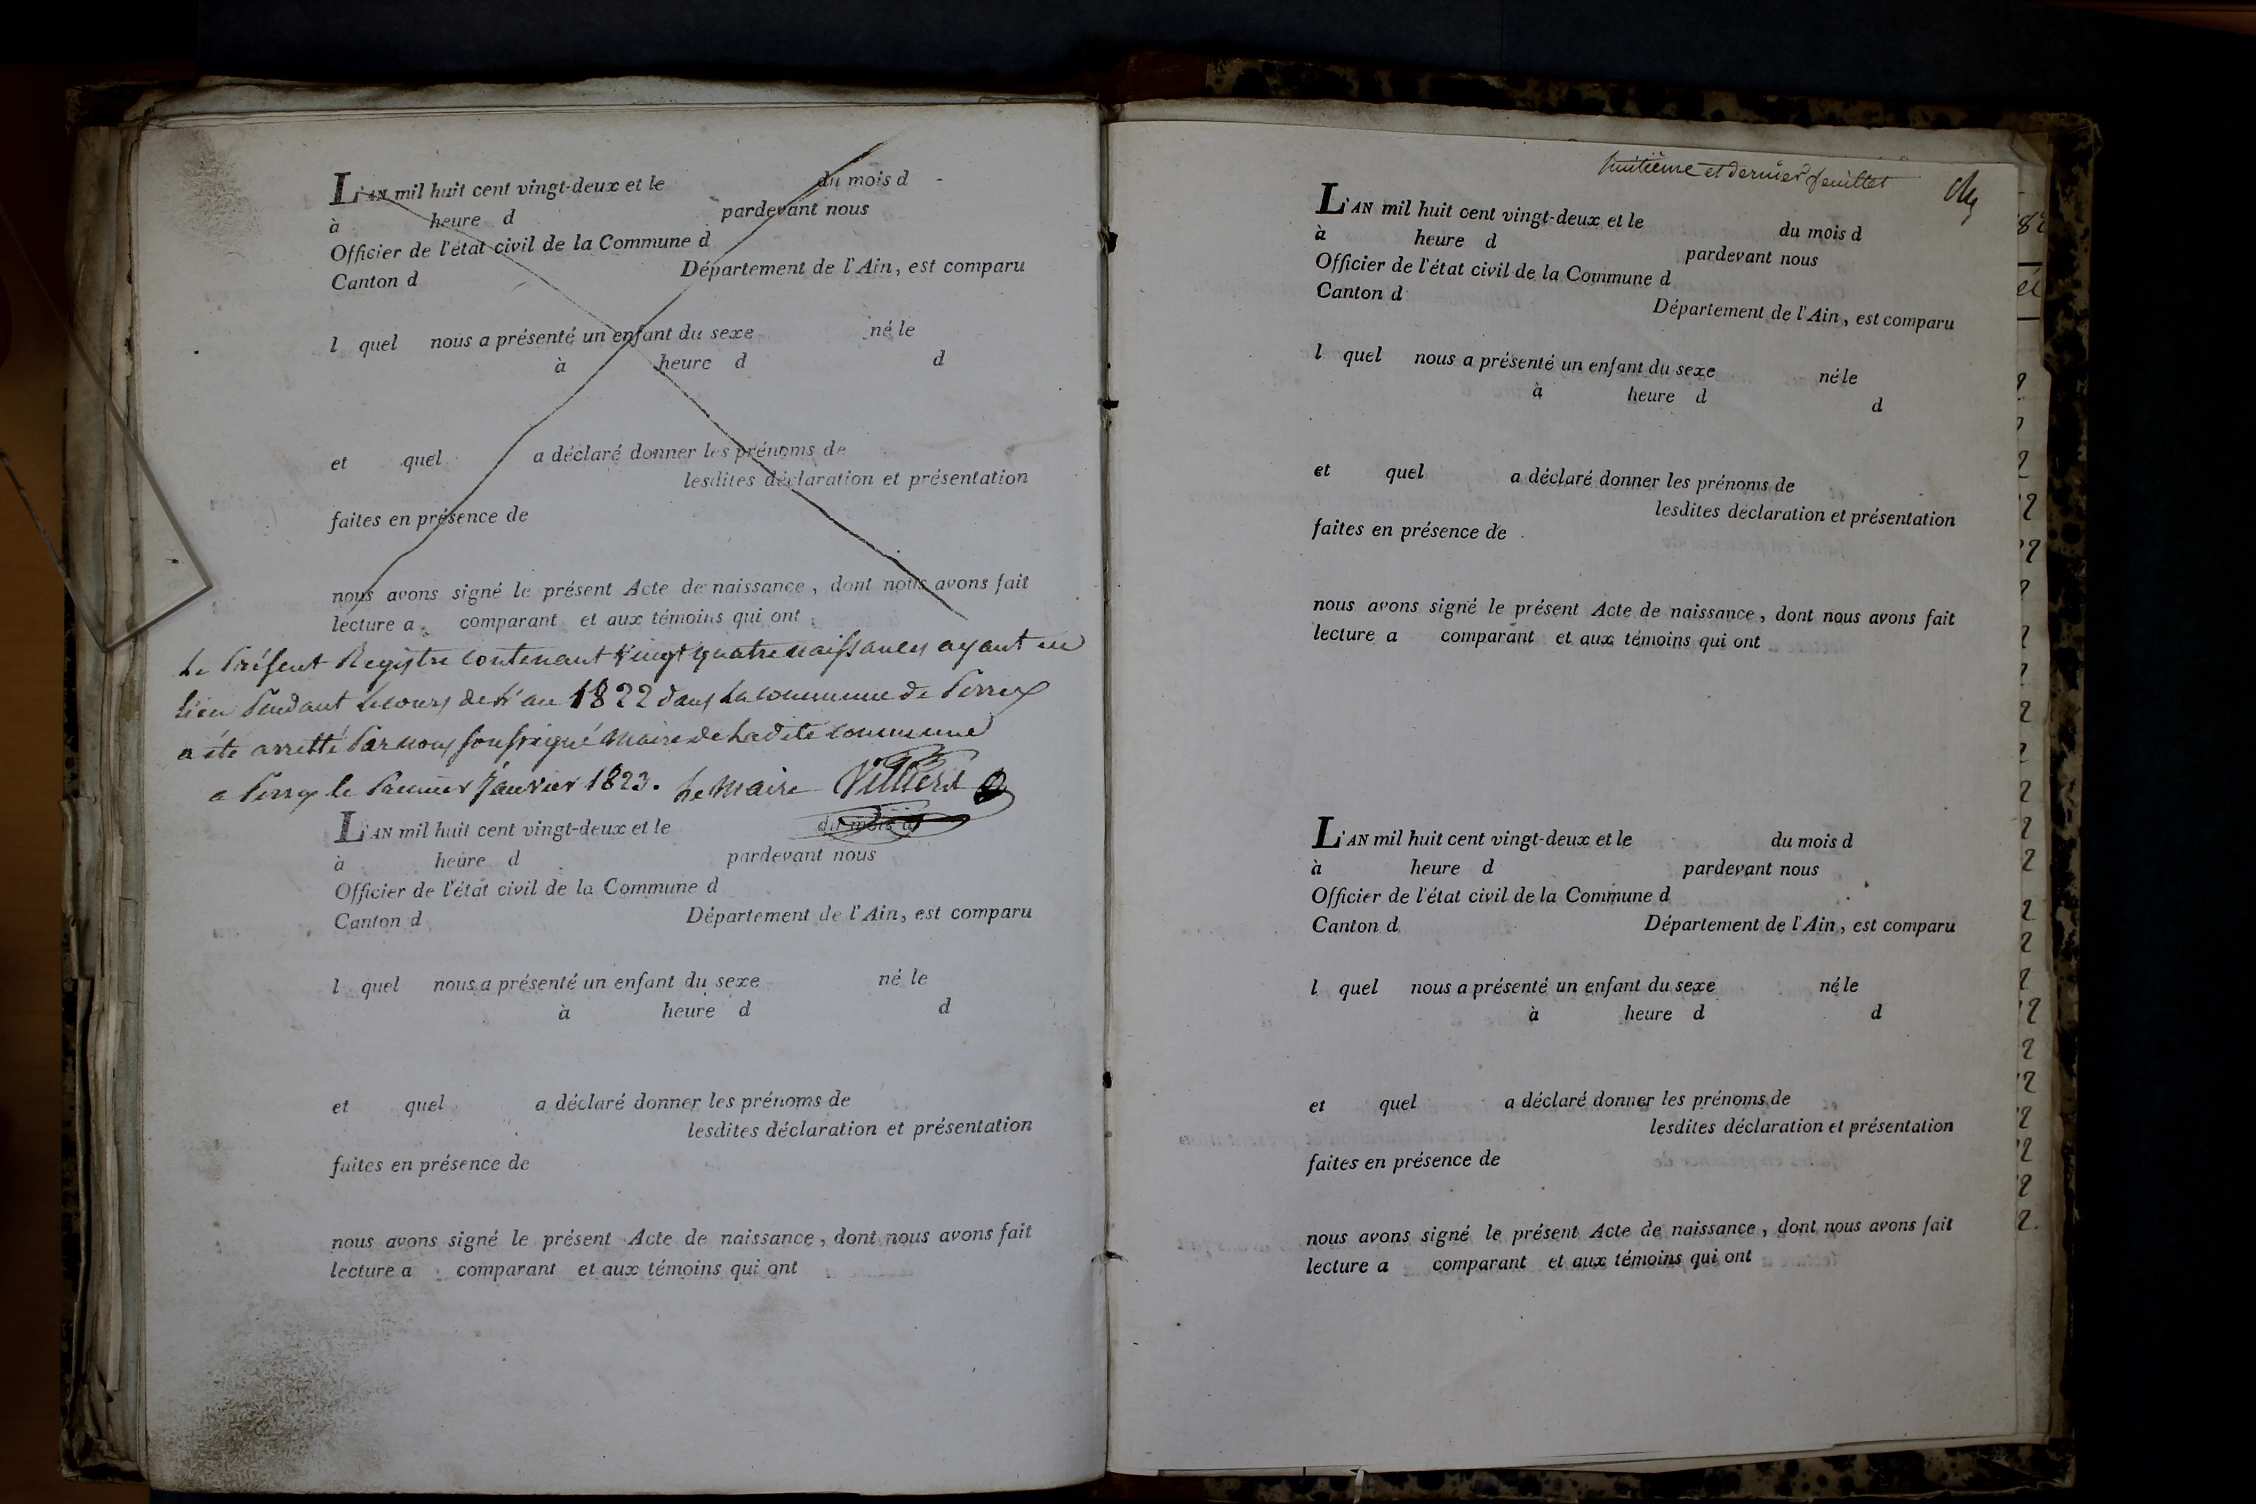 L'AN mil huit cent vingt-deux et le du mois d
à heure d pardevant nous
Officier de l'état civil de la Commune d
Canton d Département de l'Ain, est comparu
l quel nous a présenté un enfant du sexe né le
à heure d d
et quel a déclaré donner les prénoms de
lesdites déclaration et présentation
faites en présence de
nous avons signé le présent Acte de naissance, dont nous avons fait
lecture a comparant et aux témoins qui ont
Le Présent Registre contenant Vingt quatre naissances ayant eu
lieu Pendant le cours de l'an 1822 dans la commune de Perrex
a été arretté Par nous soussigné Maire de Ladite commune
a Perrex le Premier Janvier 1823. Le Maire Villierd
L'AN mil huit cent vingt-deux et le du mois d
à heure d pardevant nous
Officier de l'état civil de la Commune d
Canton d Département de l'Ain, est comparu
l quel nous a présenté un enfant du sexe né le
à heure d d
et quel a déclaré donner les prénoms de
lesdites déclaration et présentation
faites en présence de
nous avons signé le présent Acte de naissance, dont nous avons fait
lecture a comparant et aux témoins qui ont
huitième et dernier feuillet
L'AN mil huit cent vingt-deux et le du mois d
à heure d pardevant nous
Officier de l'état civil de la Commune d
Canton d Département de l'Ain, est comparu
l quel nous a présenté un enfant du sexe né le
à heure d d
et quel a déclaré donner les prénoms de
lesdites déclaration et présentation
faites en présence de
nous avons signé le présent Acte de naissance, dont nous avons fait
lecture a comparant et aux témoins qui ont
L'AN mil huit cent vingt-deux et le du mois d
à heure d pardevant nous
Officier de l'état civil de la Commune d
Canton d Département de l'Ain, est comparu
l quel nous a présenté un enfant du sexe né le
à heure d d
et quel a déclaré donner les prénoms de
lesdites déclaration et présentation
faites en présence de
nous avons signé le présent Acte de naissance, dont nous avons fait
lecture a comparant et aux témoins qui ont